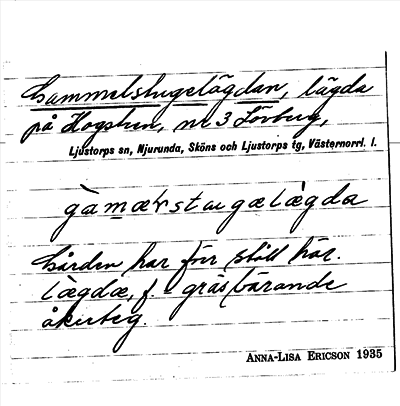 Gammelstugelägdan, lägda
på Hogsten, nr 3 Lövberg,
Ljustorps sn, Njurunda, Sköns och Ljustorps tg, Västernorrl. l.
gàmæ̀rstugælægda
Gården har förr stått här.
lægdæ, f. = gräsbärande
åkerteg.
ANNA-LISA ERICSON 1935